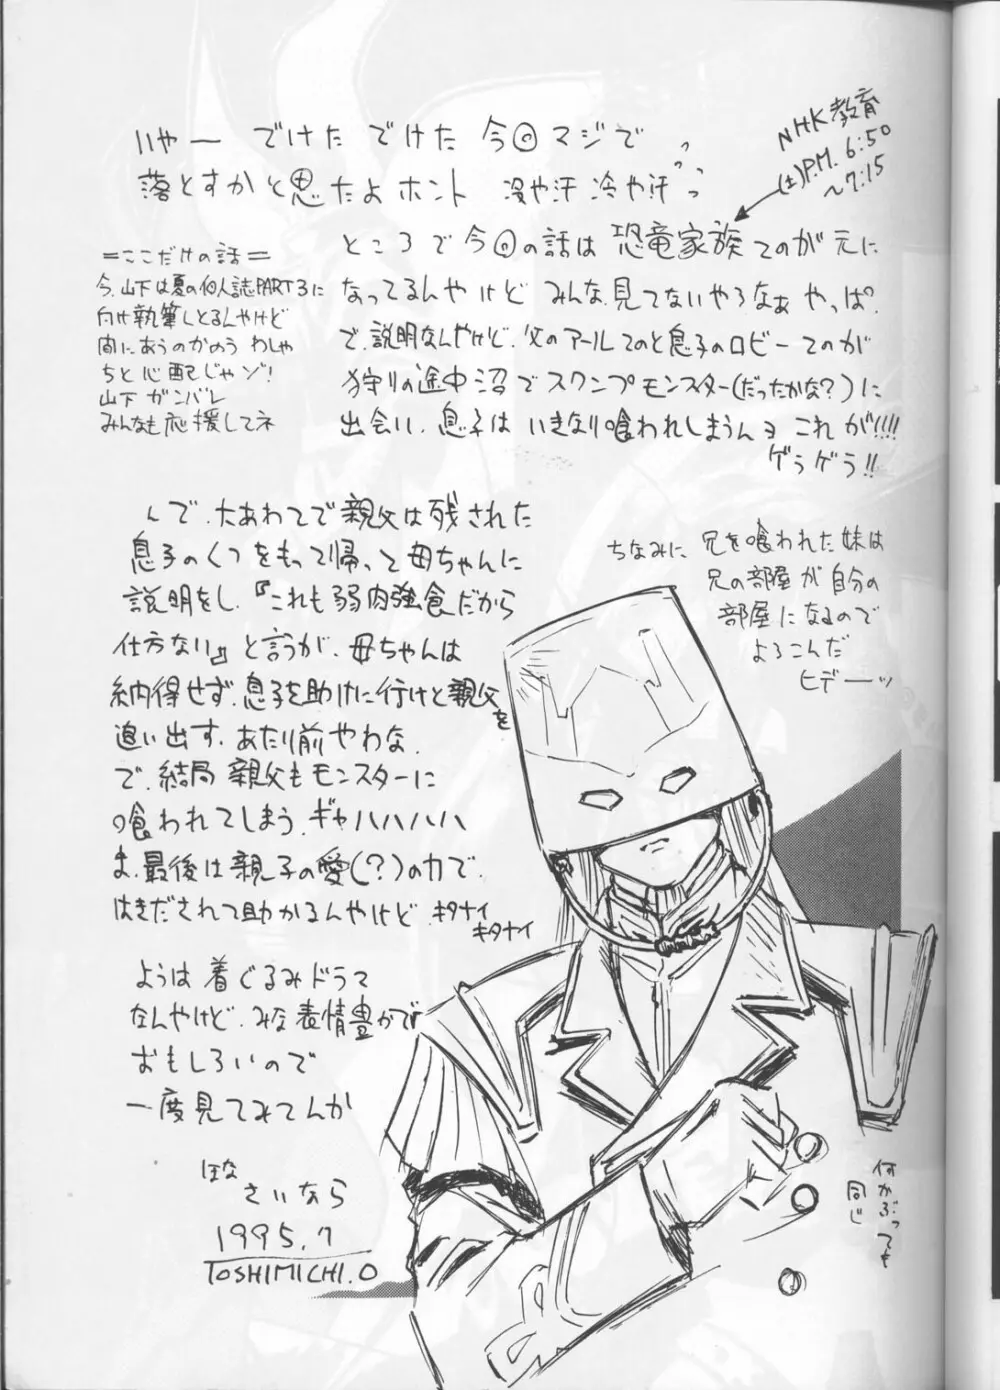 いやー でけた でけた 今回マジで
落とすかと思たよホント 冷や汗 冷や汗っっっ
NHK教育
(土)P.M. 6:50
〜7:15
ところで今回の話は 恐竜家族 てのが元に
なってるんやけど みんな見てないやろなぁ やっぱ。
で、説明なんやけど、父のアールてのと息子のロビーてのが
狩りの途中沼でスワンプモンスター(だったかな?)に
出会い、息子は いきなり喰われしまうんョ これが!!!!
ゲラゲラ!!
=ここだけの話=
今、山下は夏の個人誌PART3に
向け執筆しとるんやけど
間にあうのかのう わしゃ
ちと心配じゃゾ!
山下 ガンバレ
みんなも応援してネ
んで、大あわてで親父は残された
息子のくつをもって帰って母ちゃんに
説明をし、『これも弱肉強食だから
仕方ない』と言うが、母ちゃんは
納得せず、息子を助けに行けと親父を
追い出す、あたり前やわな、
で、結局 親父もモンスターに
喰われてしまう、ギャハハハハハ
ま、最後は親子の愛(?)の力で、
はきだされて助かるんやけど キタナイ
キタナイ
ちなみに 兄を喰われた妹は
兄の部屋が自分の
部屋になるので
よろこんだ
ヒデーッ
ようは着ぐるみドラマ
なんやけど、みな表情豊かで
おもしろいので
一度見てみてんか
ほな
さいなら
1995.7
TOSHIMICHI.O
何かぶっても
同じ